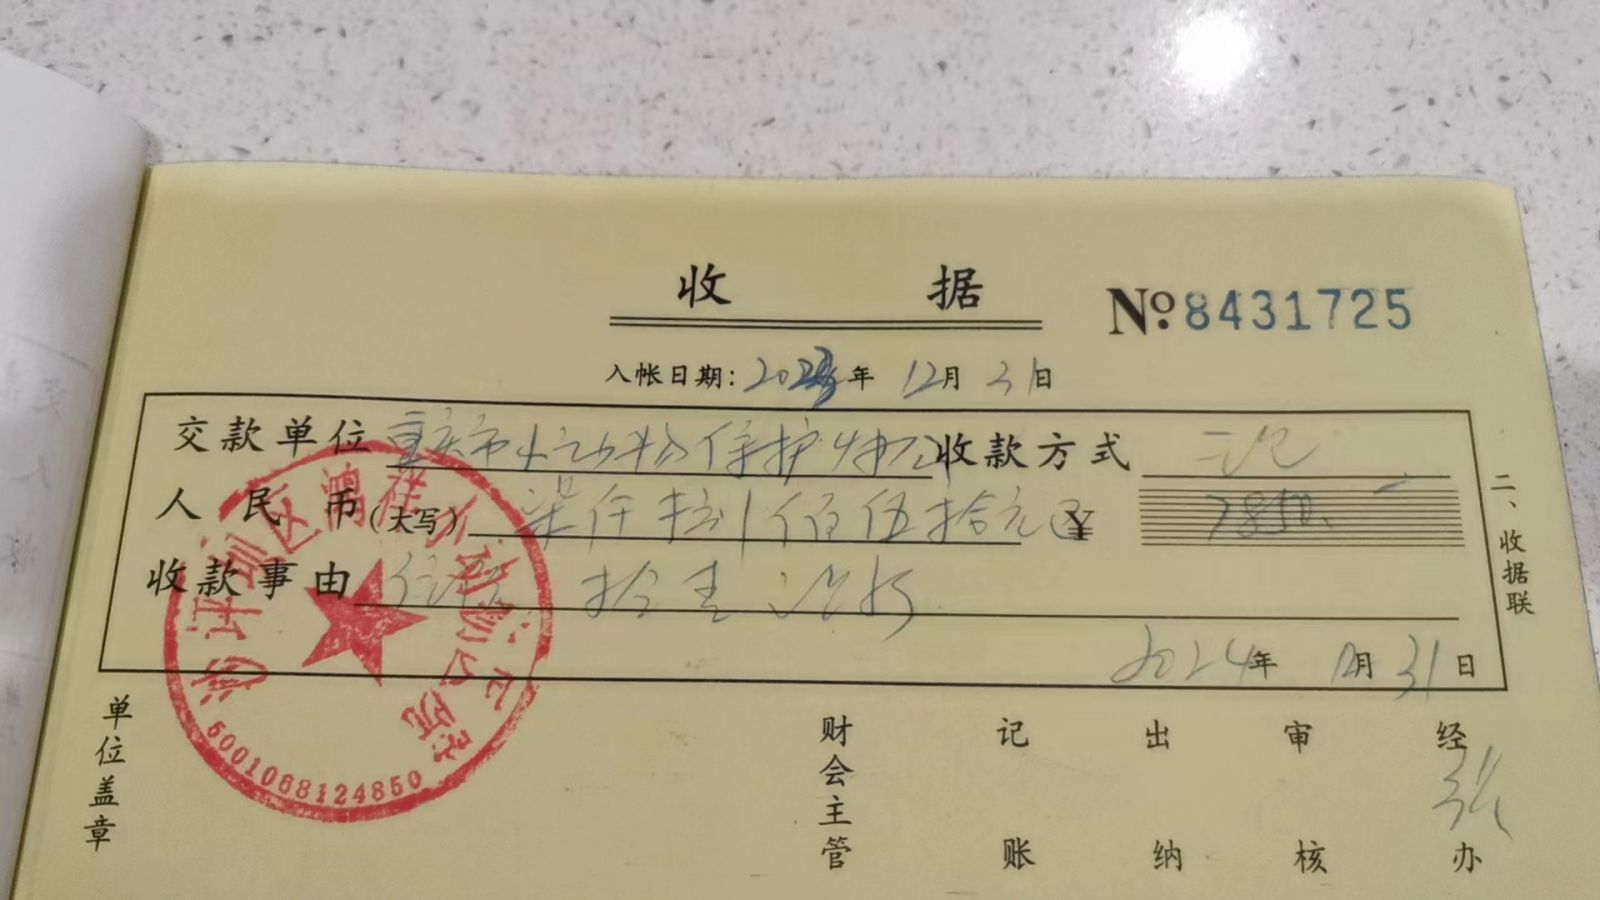 收 据
№ 8431725
入帐日期: 2024年 12月 31日
交款单位 重庆市小动物保护 收款方式
人民币(大写) 柒仟捌佰伍拾元 ¥ 7850.
收款事由
2024年 12月 31日
二、收据联
5001068124850
单位盖章
财会主管
记账
出纳
审核
经办